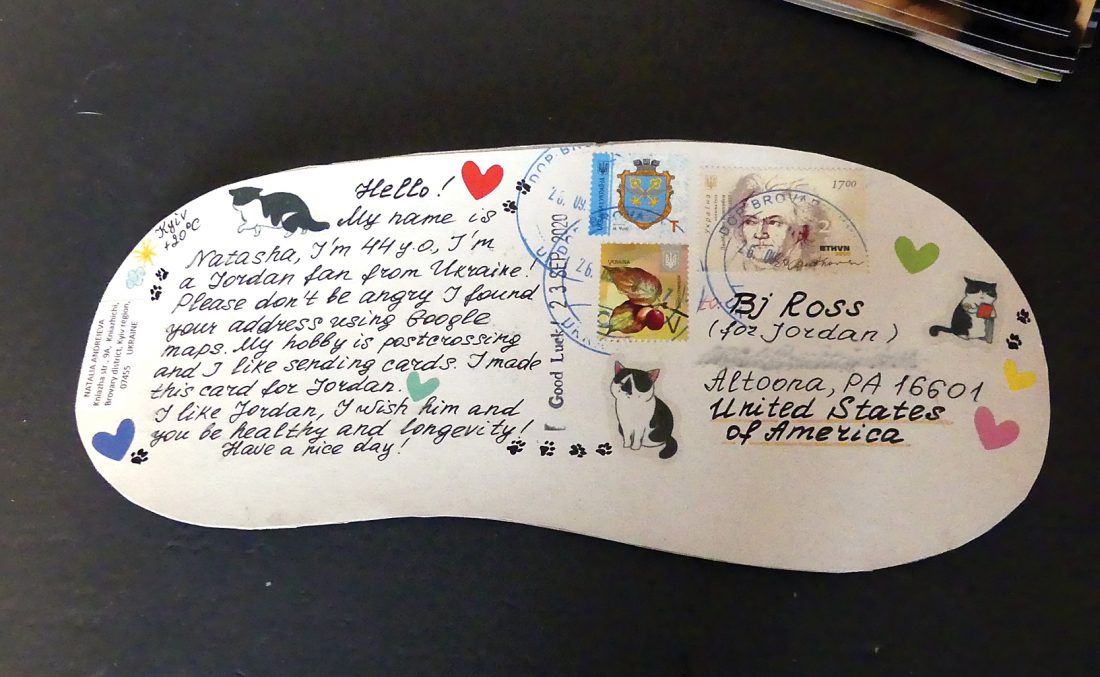 Hello!
My name is
Natasha, I'm 44 y.o, I'm
a Jordan fan from Ukraine!
Please don't be angry I found
your address using Google
maps. My hobby is postcrossing
and I like sending cards. I made
this card for Jordan.
I like Jordan, I wish him and
you be healthy and longevity!
Have a nice day!
Kyiv
+20°C
NATALIA ANDREEVA
Kniazha str. 9A, Kniazhichi,
Brovary district, Kyiv region,
07455 UKRAINE
Good Luck! 23 SEP 2020
DOP BROV
26. 09.
UKR
T
УКРАЇНА
UKRAINE
26.
Україна
1700
DOP BROVAR
26. 09
BTHVN
Bj Ross
(for Jordan)
Altoona, PA 16601
United States
of America